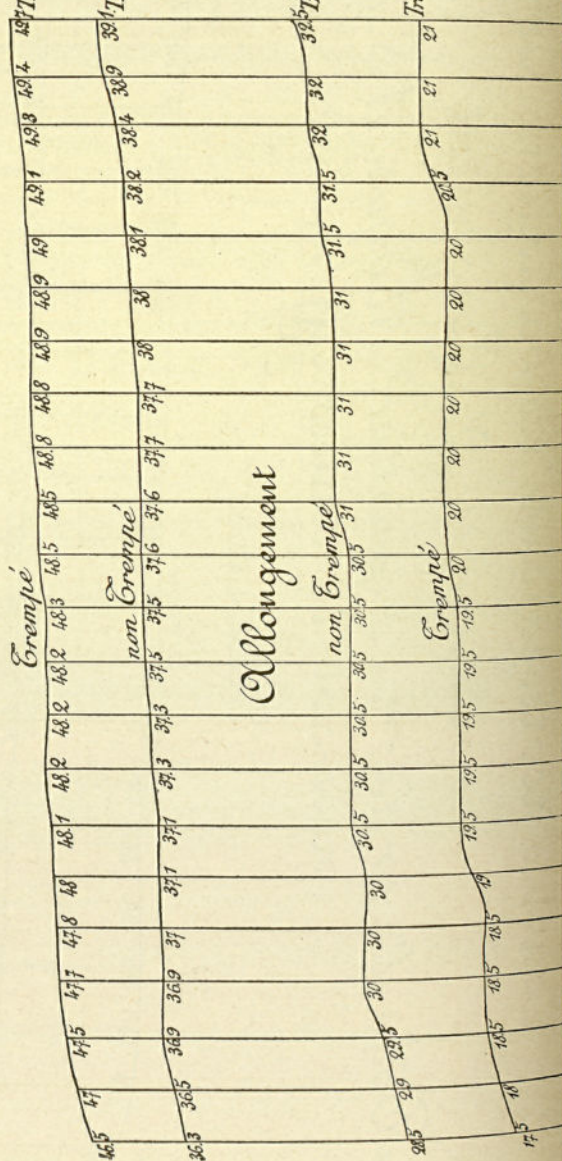 Trempé
46.5 47 47.5 47.7 47.8 48 48.1 48.2 48.2 48.2 48.3 48.5 48.5 48.8 48.8 48.9 48.9 49 49.1 49.3 49.4 49.7
non Trempé
36.3 36.5 36.9 36.9 37 37.1 37.1 37.3 37.3 37.5 37.5 37.6 37.6 37.7 37.7 38 38 38.1 38.2 38.4 38.9 39.1
Allongement
non Trempé
28.5 29 29.5 30 30 30 30.5 30.5 30.5 30.5 30.5 30.5 31 31 31 31 31 31.5 31.5 32 32 32.5
Trempé
17.5 18 18.5 18.5 18.5 19 19.5 19.5 19.5 19.5 19.5 20 20 20 20 20 20 20 20.5 21 21 21